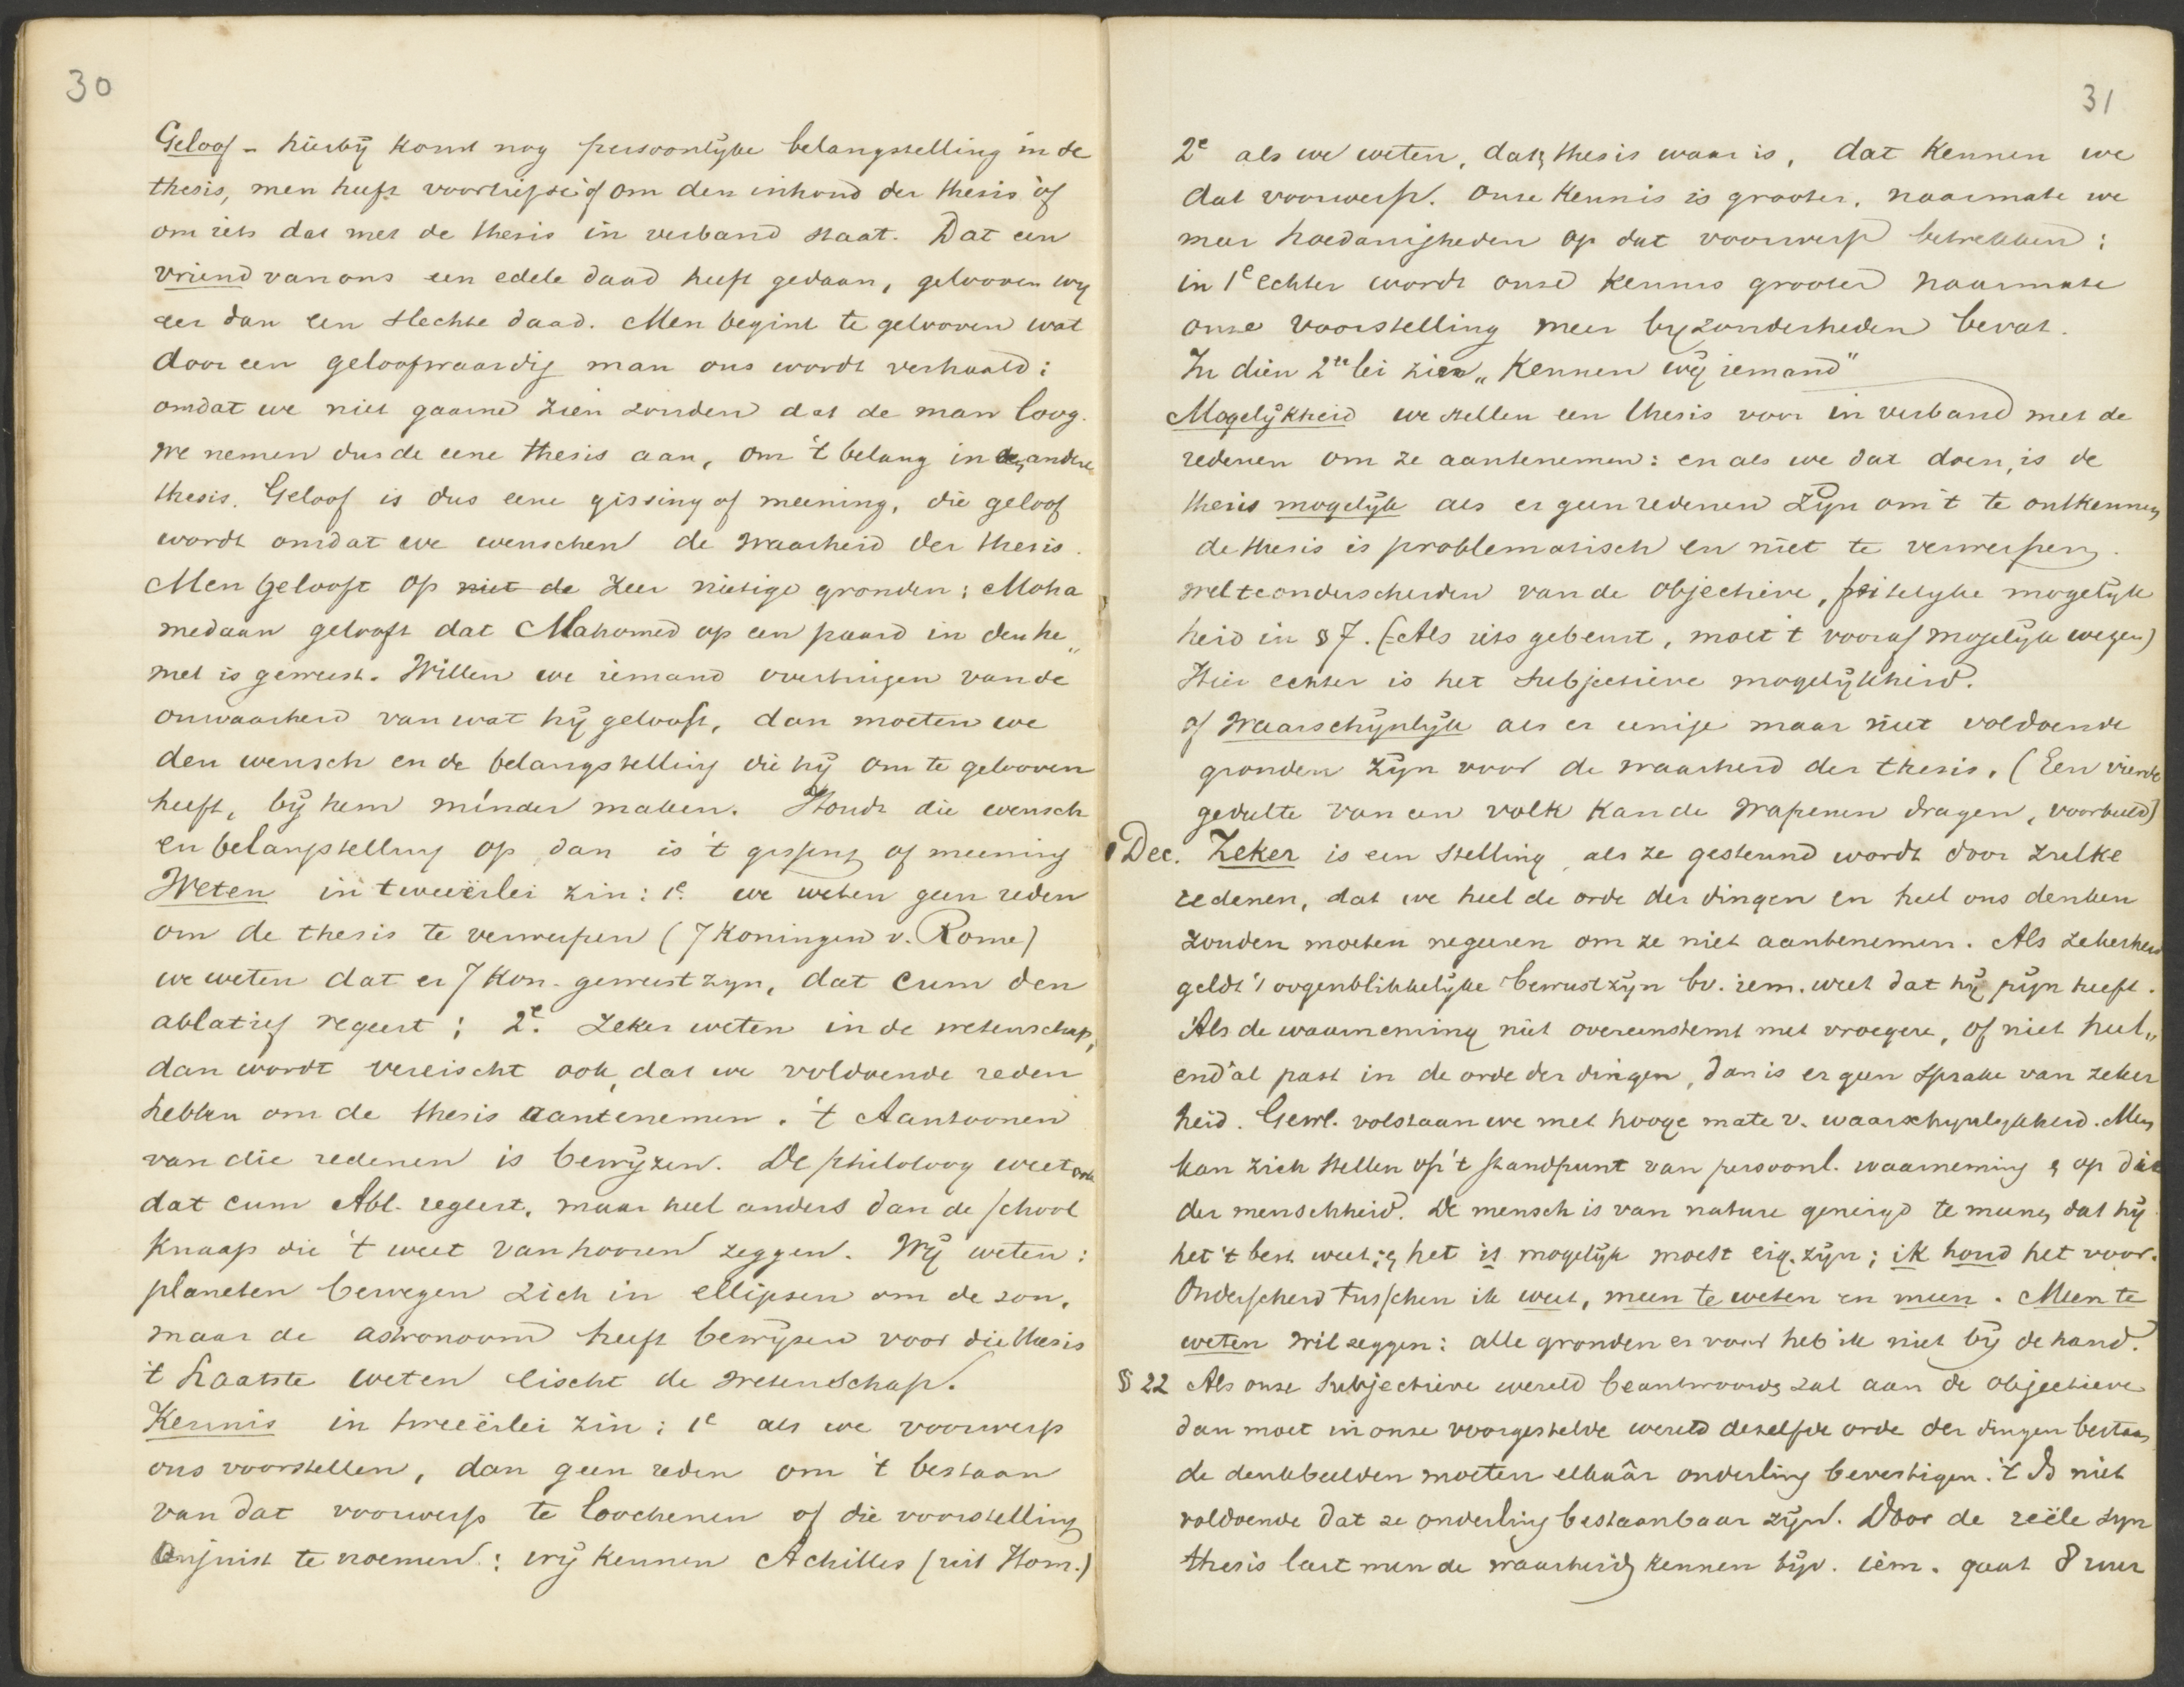 30
Geloof – hierbij komt nog persoonlijke belangstelling in de
thesis, men heeft voorliefde òf om den inhoud der thesis òf
om iets dat met de thesis in verband staat. Dat een
vriend van ons een edele daad heeft gedaan, gelooven wy
eer dan een slechte daad. Men begint te gelooven wat
door een geloofwaardig man ons wordt verhaald:
omdat we niet gaarne zien zouden dat de man loog.
We nemen dus de eene thesis aan, om 't belang in de andere
thesis. Geloof is dus eene gissing of meening, die geloof
wordt omdat we wenschen de waarheid der thesis.
Men gelooft op niet de zeer nietige gronden: Moha
medaan gelooft dat Mahomed op een paard in den he„
mel is geweest. Willen we iemand overtuigen van de
onwaarheid van wat hij gelooft, dan moeten we
den wensch en de belangstelling die hij om te gelooven
heeft, bij hem minder maken. Houdt die wensch
en belangstelling op dan is 't gissing of meening
Weten in tweeërlei zin: 1e. we weten geen reden
om de thesis te verwerpen (7 Koningen v. Rome)
we weten dat er 7 Kon. geweest zyn, dat cum den
ablatief regeert; 2e. Zeker weten in de wetenschap,
dan wordt vereischt ook, dat we voldoende reden
hebben om de thesis aantenemen. 't Aantoonen
van die redenen is bewijzen. De philoloog weet ook
dat cum Abl. regeert, maar heel anders dan de school
knaap die 't weet van hooren zeggen. Wij weten:
planeten bewegen zich in ellipsen om de zon,
maar de astronoom heeft bewijzen voor die thesis
't Laatste weten eischt de wetenschap.
Kennis in tweeërlei zin: 1e als we voorwerp
ons voorstellen, dan geen reden om 't bestaan
van dat voorwerp te loochenen of die voorstelling
onjuist te noemen: wij kennen Achilles (uit Hom.)
31
2e als we weten, dat thesis waar is, dat kennen we
dat voorwerp. Onze kennis is grooter, naarmate we
meer hoedanigheden op dat voorwerp betrekken:
in 1e echter wordt onze kennis grooter naarmate
onze voorstelling meer byzonderheden bevat.
In dien 2erlei zien „Kennen wij iemand"
Mogelijkheid we stellen een thesis voor in verband met de
redenen om ze aantenemen: en als we dat doen, is de
thesis mogelijk als er geen redenen zijn om 't te ontkennen
de thesis is problematisch en niet te verwerpen.
wel te onderscheiden van de objectieve, feitelyke mogelijk
heid in § 7. (Als iets gebeurt, moet 't vooraf mogelijk wezen)
Hier echter is het subjectieve mogelijkheid.
of Waarschijnlijk als er eenige maar niet voldoende
gronden zijn voor de waarheid der thesis. (Een vierde
gedeelte van een volk kan de wapenen dragen, voorbeeld)
Dec. Zeker is een stelling, als ze gesteund wordt door zulke
redenen, dat we heel de orde der dingen en heel ons denken
zouden moeten negeeren om ze niet aantenemen. Als zekerheid
geldt 't oogenblikkelijke bewustzijn bv. iem. weet dat hij pijn heeft.
Als de waarneming niet overeenstemt met vroegere, of niet heel„
end'al past in de orde der dingen, dan is er geen sprake van zeker
heid. Gewl. volstaan we met hooge mate v. waarschynlykheid. Men
kan zich stellen op 't standpunt van persoonl. waarneming & op dat
der menschheid. De mensch is van nature geneigd te meenen dat hij
het 't best weet; & het is mogelijk moest eig. zijn; ik houd het voor.
Onderscheid tusschen ik weet, meen te weten en meen. Meen te
weten wil zeggen: alle gronden er voor heb ik niet bij de hand.
§ 22 Als onze subjectieve wereld beantwoorden zal aan de objectieve
dan moet in onze voorgestelde wereld dezelfde orde der dingen bestaan
de denkbeelden moeten elkaâr onderling bevestigen. 't Is niet
voldoende dat ze onderling bestaanbaar zijn. Door de reële syn
thesis leert men de waarheid kennen bijv. iem. gaat 8 uur